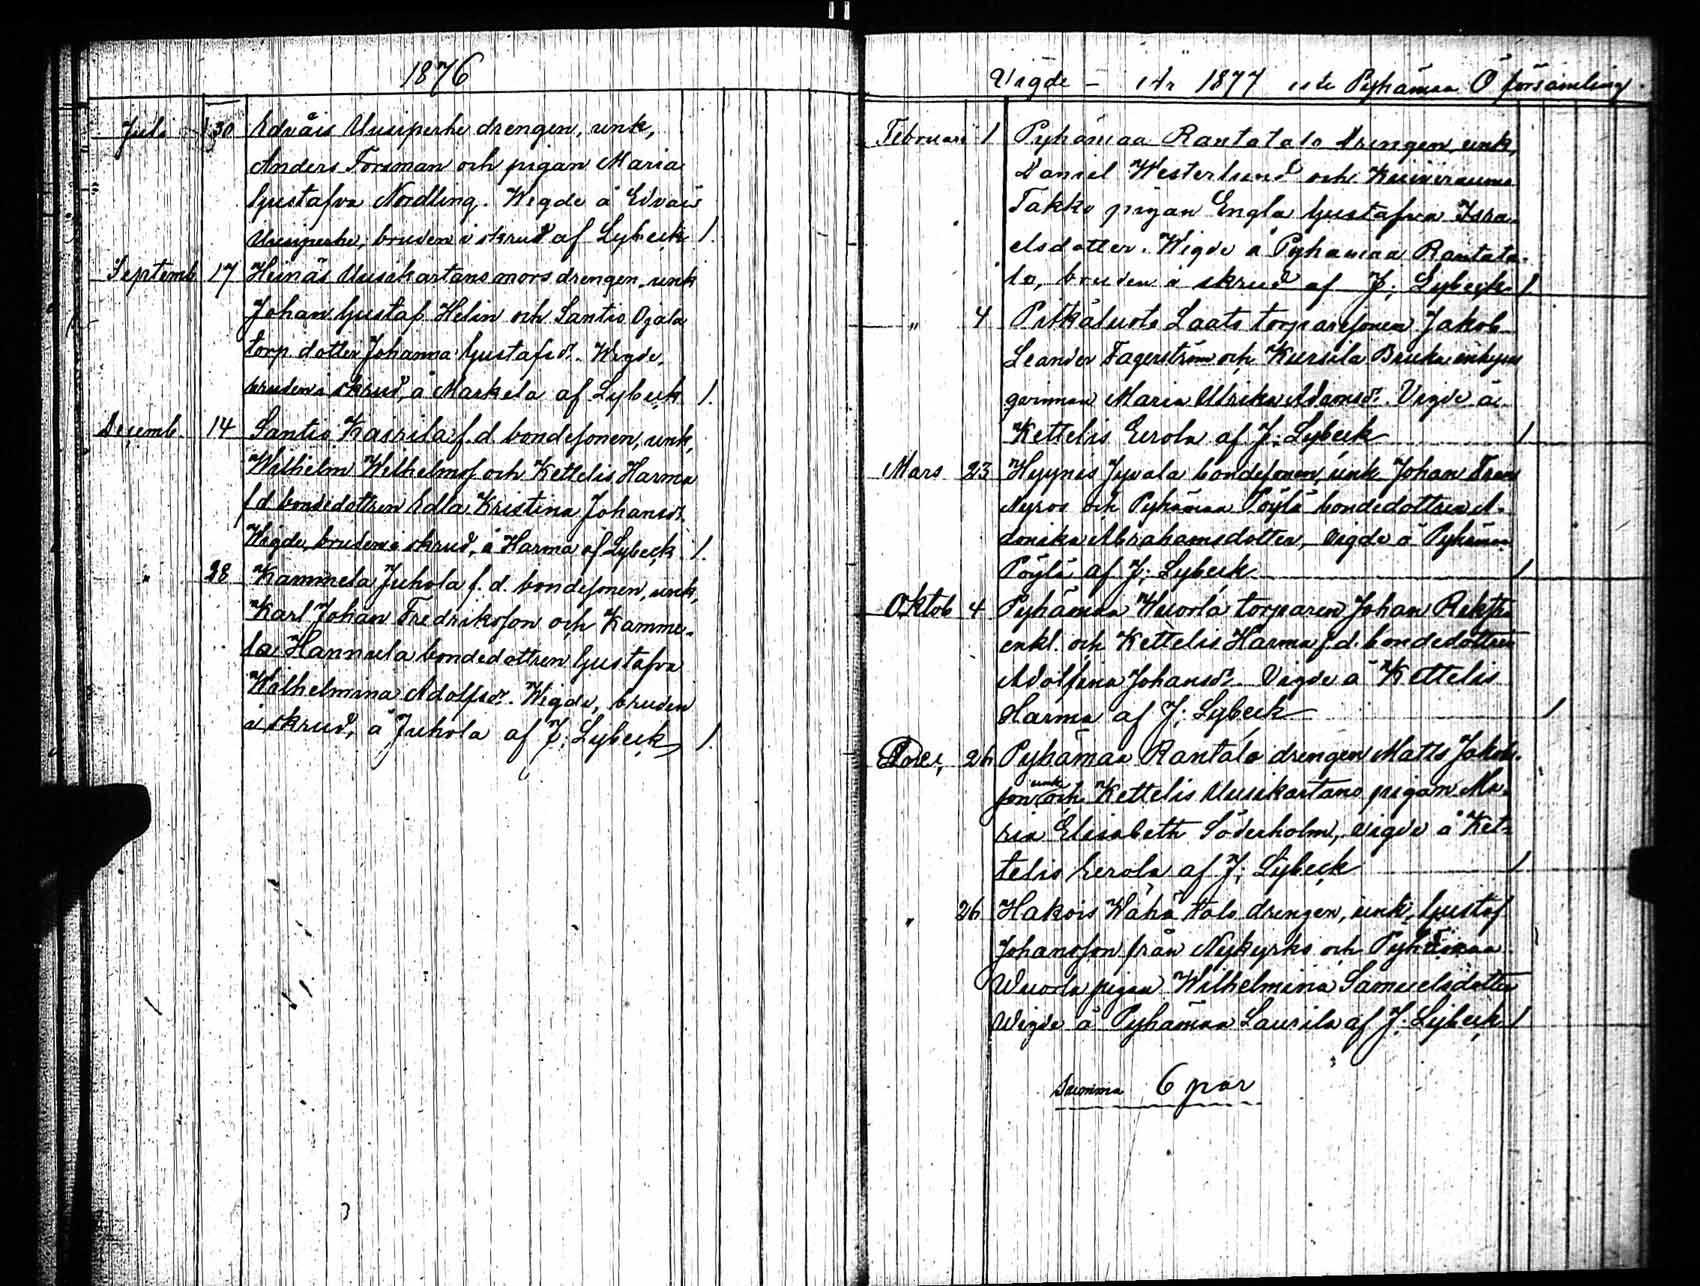 1876
Juli 30 Edväis Uusiperhe drengen, unk,
Anders Forsman och pigan Maria
Gustafva Nordling. Wigde å Edväis
Uusiperhe, bruden i skrud af Lybeck 1.
Septemb 17 Heinäs Uusikartano mors drengen, unk
Johan Gustaf Helin och Santio Ojala
torp dotter Johanna Gustafsdr. Wigde,
bruden i skrud, å Markela af Lybeck 1.
Decemb 14 Santio Kaurila f.d. bondesonen, unk,
Wilhelm Wilhelmss och Kettelis Harma
f d bondedottren Edla Kristina Johansdr.
Wigde, bruden i skrud, å Harma af Lybeck 1.
" 28 Kammela Juhola f. d. bondesonen, unk,
Karl Johan Fredriksson och Kamme-
la Hannula bondedottren Gustafva
Wilhelmina Adolfsdr. Wigde, bruden
i skrud, å Juhola af J. Lybeck 1.
Vigde – År 1877 uti Pyhämaa Ö församling.
Februari 1 Pyhämaa Rantatalo drengen, unk,
Daniel Westerlund och
Takko pigan Engla Gustafva Isra-
elsdotter. Wigde å Pyhämaa Rantata-
lo, bruden i skrud af J. Lybeck 1.
" 4 Pitkäluoto Laats torparesonen Jakob
Leander Fagerström och Kursila
qvinnan Maria Ulrika Adamsdr. Vigde å
Kettelis Eerola af J. Lybeck 1
Mars 23 Heynis Jyvala bondesonen, unk Johan
Nyroos och Pyhämaa Pöylä bondedottren A-
donika Abrahamsdotter, vigde å Pyhämaa
Pöylä af J. Lybeck 1
Oktob 4 Pyhämaa Wuorla torparen Johan
enkl. och Kettelis Harma f.d. bondedottren
Adolfina Johansdr. Vigde å Kettelis
Harma af J. Lybeck 1
Dec, 26 Pyhämaa Rantalo drengen Matts Jakob-
son unk och Kettelis Uusikartano pigan Ma-
ria Elisabeth Söderholm, vigde å Ket-
telis Eerola af J. Lybeck 1
" 26 Hakois Wähä talo drengen, unk, Gustaf
Johansson från Nykyrko och Pyhämaa
Wuorla pigan Wilhelmina Samuelsdotter
Wigde å Pyhämaa Laurila af J. Lybeck 1
Summa 6 par